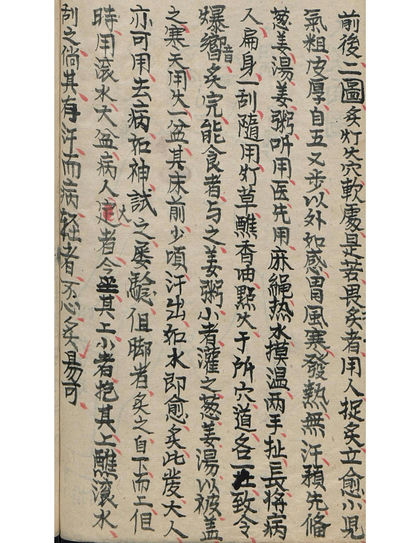 前後二圖炙灯火穴軟處是苦畏炙者用人捉炙立愈小児
氣粗皮厚自五又步以外如感冒風寒發熱無汗須先俻
葱姜湯姜粥听用医先用麻繩热水摸温两手扯長将病
人扁身一刮随用灯草蘸香油點火于所穴道各一壮致令
爆響音炙完能食者与之姜粥小者灌之葱姜湯以被盖
之寒天用火一盆其床前少頃汗出如水即愈炙此業大人
亦可用去病如神試之屡騐但脚者炙之自下而上但
時用滚水大盆病人大者令坐其上小者抱其上蘸滚水
刮之倘其有汗而病轻者不必炙易可